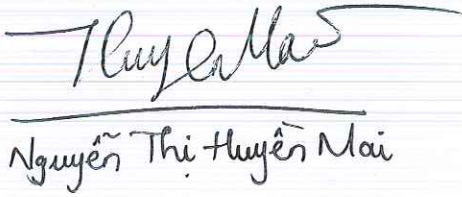 Huyền Mai
Nguyễn Thị Huyền Mai